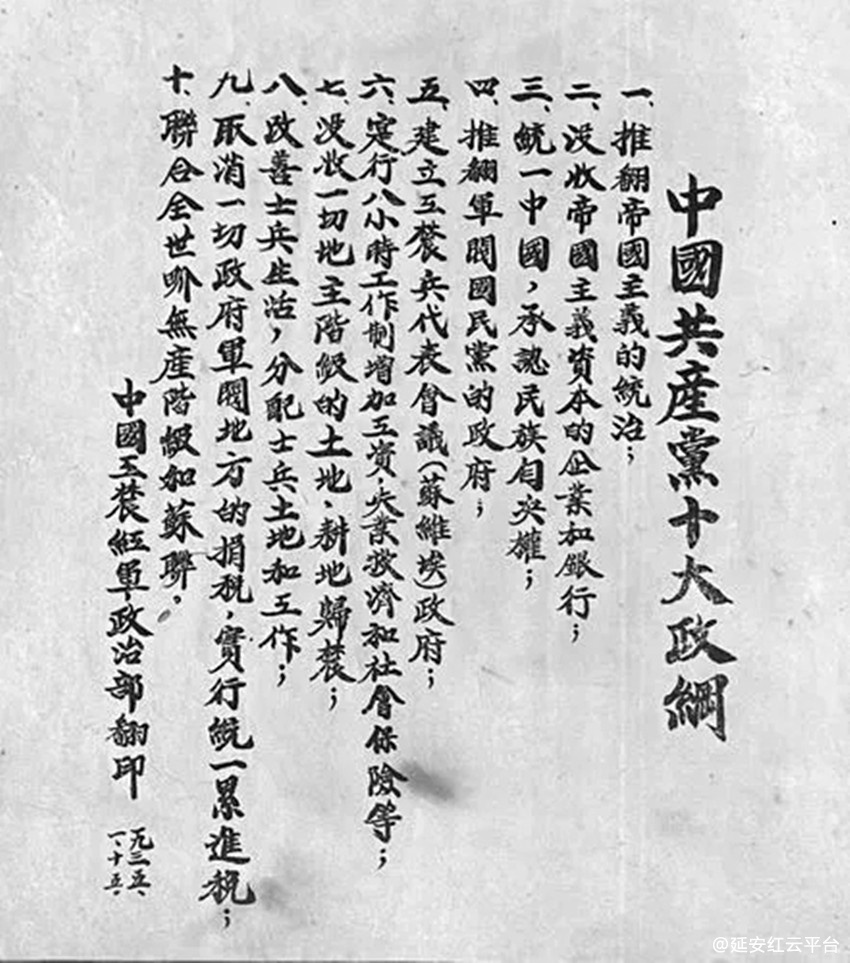 中國共產黨十大政綱
一、推翻帝國主義的統治；
二、没收帝國主義資本的企業和銀行；
三、統一中國，承認民族自决權；
四、推翻軍閥國民黨的政府；
五、建立工農兵代表會議（蘇維埃）政府；
六、實行八小時工作制增加工資，失業救濟和社會保險等；
七、没收一切地主階級的土地、耕地歸農；
八、改善士兵生活，分配士兵土地和工作；
九、取消一切政府軍閥地方的捐税，實行統一累進税；
十、聯合全世界無產階級和蘇聯。
中國工農紅軍政治部翻印
一九三五、
一、十五、
@延安红云平台